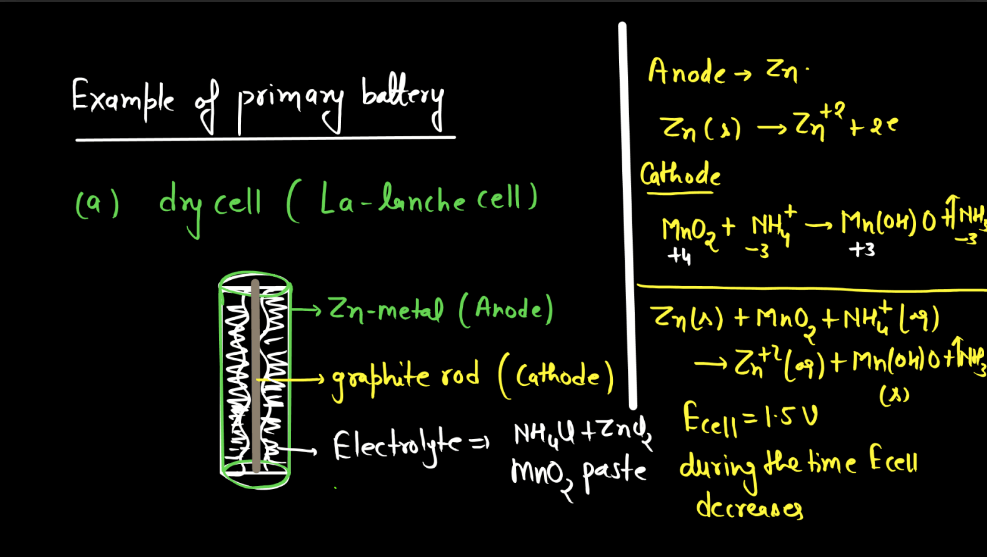 Example of primary battery
(a) dry cell ( La-lanche cell )
→ Zn-metal (Anode)
→ graphite rod (Cathode)
→ Electrolyte ⇒ NH₄Cl + ZnCl₂
MnO₂ paste
Anode → Zn.
Zn(s) → Zn⁺² + 2e
Cathode
MnO₂ + NH₄⁺ → Mn(OH)O + ↑NH₃
+4 -3 +3 -3
Zn(s) + MnO₂ + NH₄⁺(aq)
→ Zn⁺²(aq) + Mn(OH)O + ↑NH₃
(s)
Ecell = 1.5 V
during the time Ecell
decreases